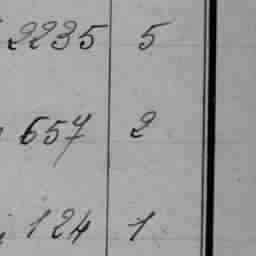 2235 5
657 2
124 1